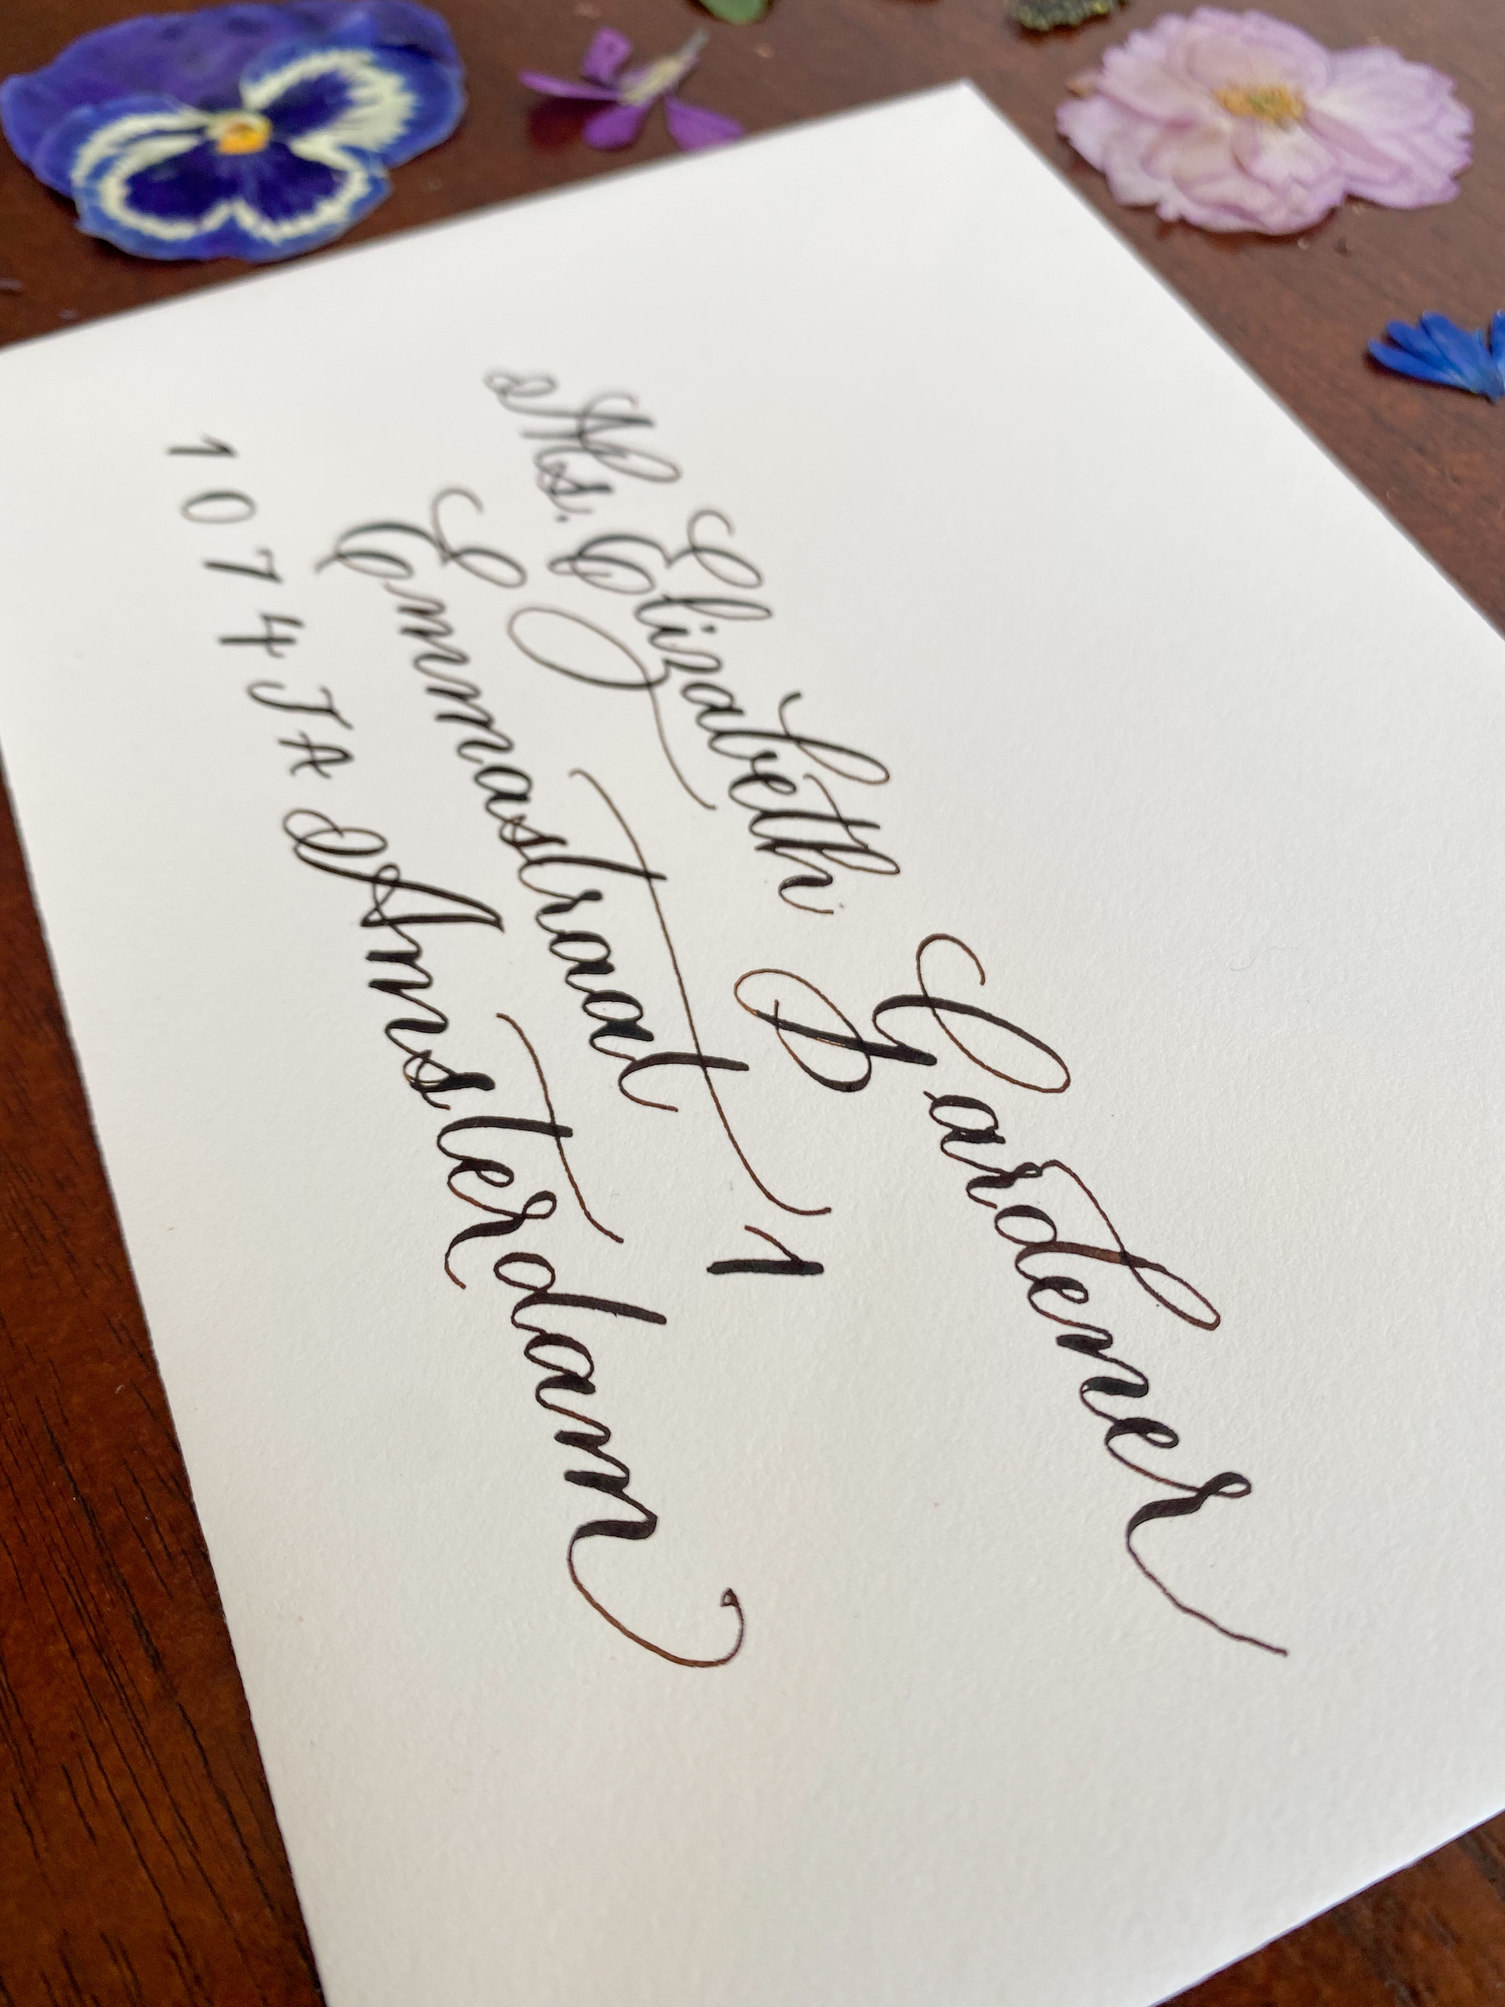 Ms. Elizabeth Gardener
Emmastraat 1
1074 JA Amsterdam